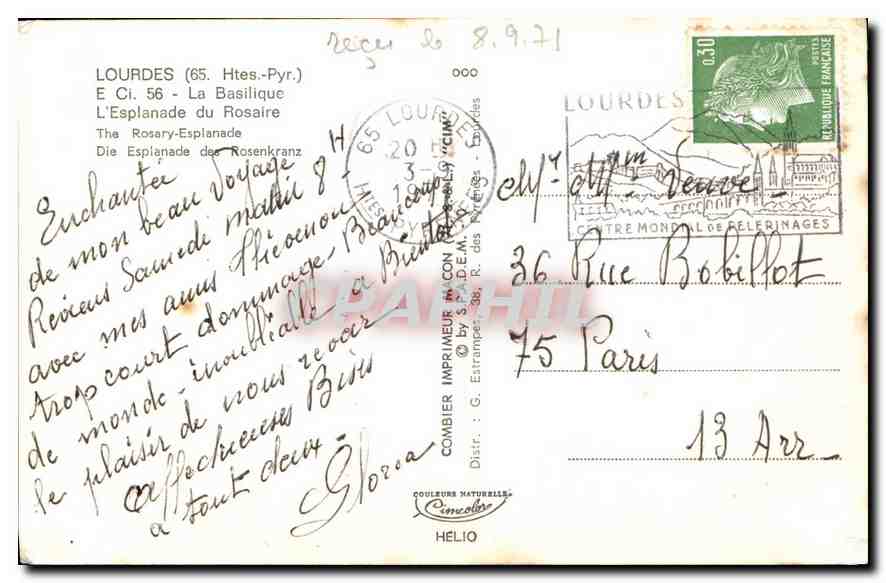 reçu le 8.9.71
LOURDES (65. Htes.-Pyr.)
E Ci. 56 - La Basilique
L'Esplanade du Rosaire
The Rosary-Esplanade
Die Esplanade des Rosenkranz
Enchantée
de mon beau voyage
Reviens Samedi matin 8H
avec mes amis
trop court dommage - Beaucoup
de monde - inoubliable à Bientôt
le plaisir de nous revoir
affectueuses Bises
a tout deux -
Gloria
COMBIER IMPRIMEUR MACON "CIM"
© by S.P.A.D.E.M.
Distr. : G. Estrampes, 38, R. des Pyrénées - Lourdes
COULEURS NATURELLES
Cimcolor
HÉLIO
65 LOURDES
20 H
3-9
19
HTES PYRENEES
LOURDES
CENTRE MONDIAL DE PELERINAGES
0,30
POSTES
REPUBLIQUE FRANÇAISE
Mr Mme Veuve -
36 Rue Bobillot
75 Paris
13 Arr
CPAPHIL